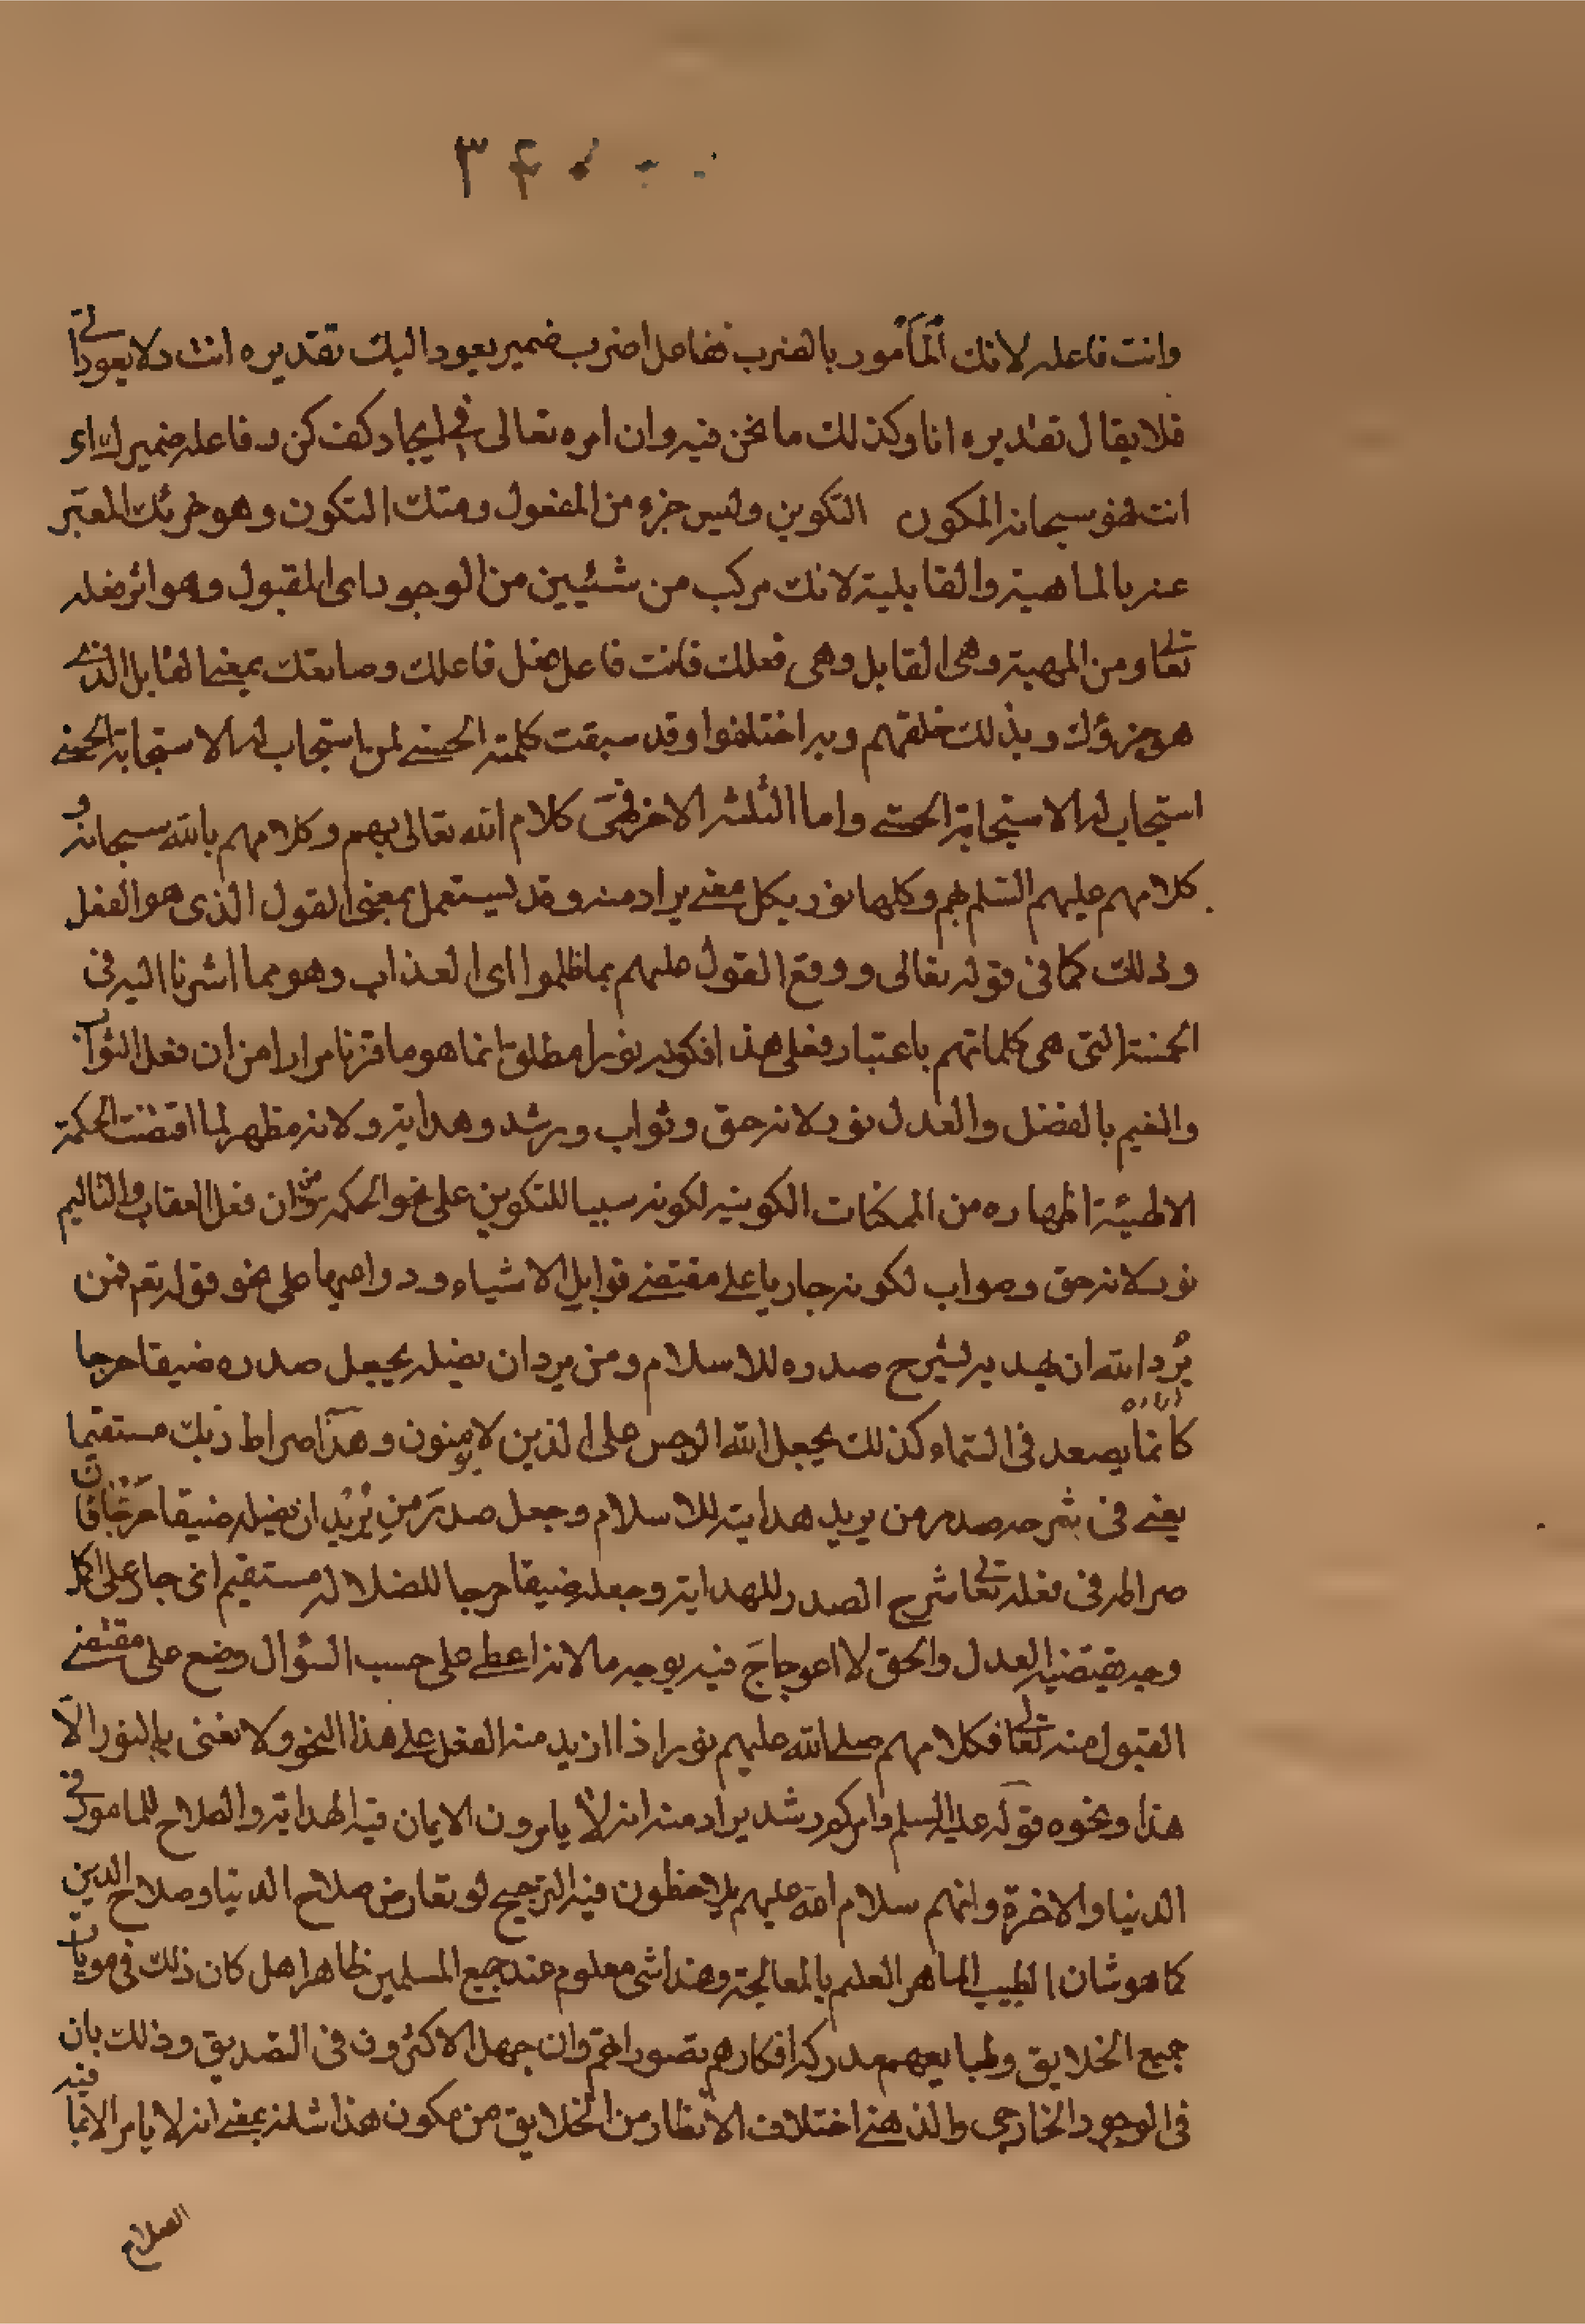 ٣۴٠
وانت فاعله لانك المأمور بالضرب ففاعل اضرب ضمير يعود اليك تقديره انت ولا يعود الى
فلا يقال تقديره انا وكذلك ما نحن فيه وان امره تعالى في ايجادك ف كن وفاعله ضميرك اى
انت فهو سبحانه المكون التكوين وليس جزء من المفعول ومنك التكون وهو جزئك المعتبر
عنه بالماهية والقابلية لانك مركب من شيئين من الوجود اى المقبول وهو اثر فعله
تعالى ومن المهية وهى القابل وهى فعلك فانت فاعل فعل فاعلك وصانعك بمعنى القابل الذى
هو جزؤك وبذلك خلقهم وبه اختلفوا وقد سبقت كلمته الحسنى لمن استجاب له الاستجابة الحسنى
استجاب له الاستجابة الحسنى واما الثلثه الاخر فهى كلام الله تعالى بهم وكلامهم بالله سبحانه و
كلامهم عليهم السلم بهم وكلها نور بكل معنى يراد منه وقد يستعمل بمعنى القول الذى هو الفعل
وذلك كما فى قوله تعالى ووقع القول عليهم بما ظلموا اى العذاب وهو مما اشرنا اليه فى
الخمسة التى هى كلماتهم باعتبار فعلى هذا فكونه نورا مطلق انما هو ما قررنا مرارا من ان فعل الثواب
والنعيم بالفضل والعدل نور لانه حق وثواب ورشد وهداية ولانه مظهر لما اقتضت الحكمة
الالهية اظهاره من الممكنات الكونيه لكونه سببا للتكوين على نحو الحكمه وان فعل العقاب والتاليم
نور لانه حق وصواب لكونه جاريا على مقتضى قوابل الاشياء ودواعيها على نحو قوله تعم فمن
يرد الله ان يهديه يشرح صدره للاسلام ومن يرد ان يضله يجعل صدره ضيقا حرجا
كانما يصعد فى السماء كذلك يجعل الله الرجس على الذين لا يؤمنون وهذا صراط ربك مستقيما
يعنى فى شرحه صدر من يريد هدايته للاسلام وجعل صدر من يريد ان يضله ضيقا حرجا فان
صراطه فى فعله تعالى شرح الصدر للهداية وجعله ضيقا حرجا للضلاله مستقيم اى جار على اكمل
وجه يقتضيه العدل والحق لا اعوجاج فيه بوجه ما لانه اعطى على حسب السؤال وضع على مقتضى
القبول منه تعالى فكلامهم صلى الله عليهم نور اذا اريد منه الفعل على هذا النحو ولا نعنى بالنور الا
هذا ونحوه قوله عليه السلم وامركم رشد يراد منه انه لا يامرون الا بما فيه الهداية والصلاح للمامور فى
الدنيا والاخرة وانهم سلام الله عليهم يلاحظون فيه الترجيح لو تعارض صلاح الدنيا وصلاح الدين
كما هو شان الطبيب الماهر العليم بالمعالجة وهذا شى معلوم عند جميع المسلمين ظاهرا هل كان ذلك فى هويات
جميع الخلايق وطبايعهم مدركة افكارهم تصوراتهم وان جهل الاكثرون فى التصديق وذلك بان
فى الوجود الخارجى والذهنى اختلاف الانظار من الخلايق من مكون هذا شانه بمعنى انه لا يامر الا بما فيه
الصلاح